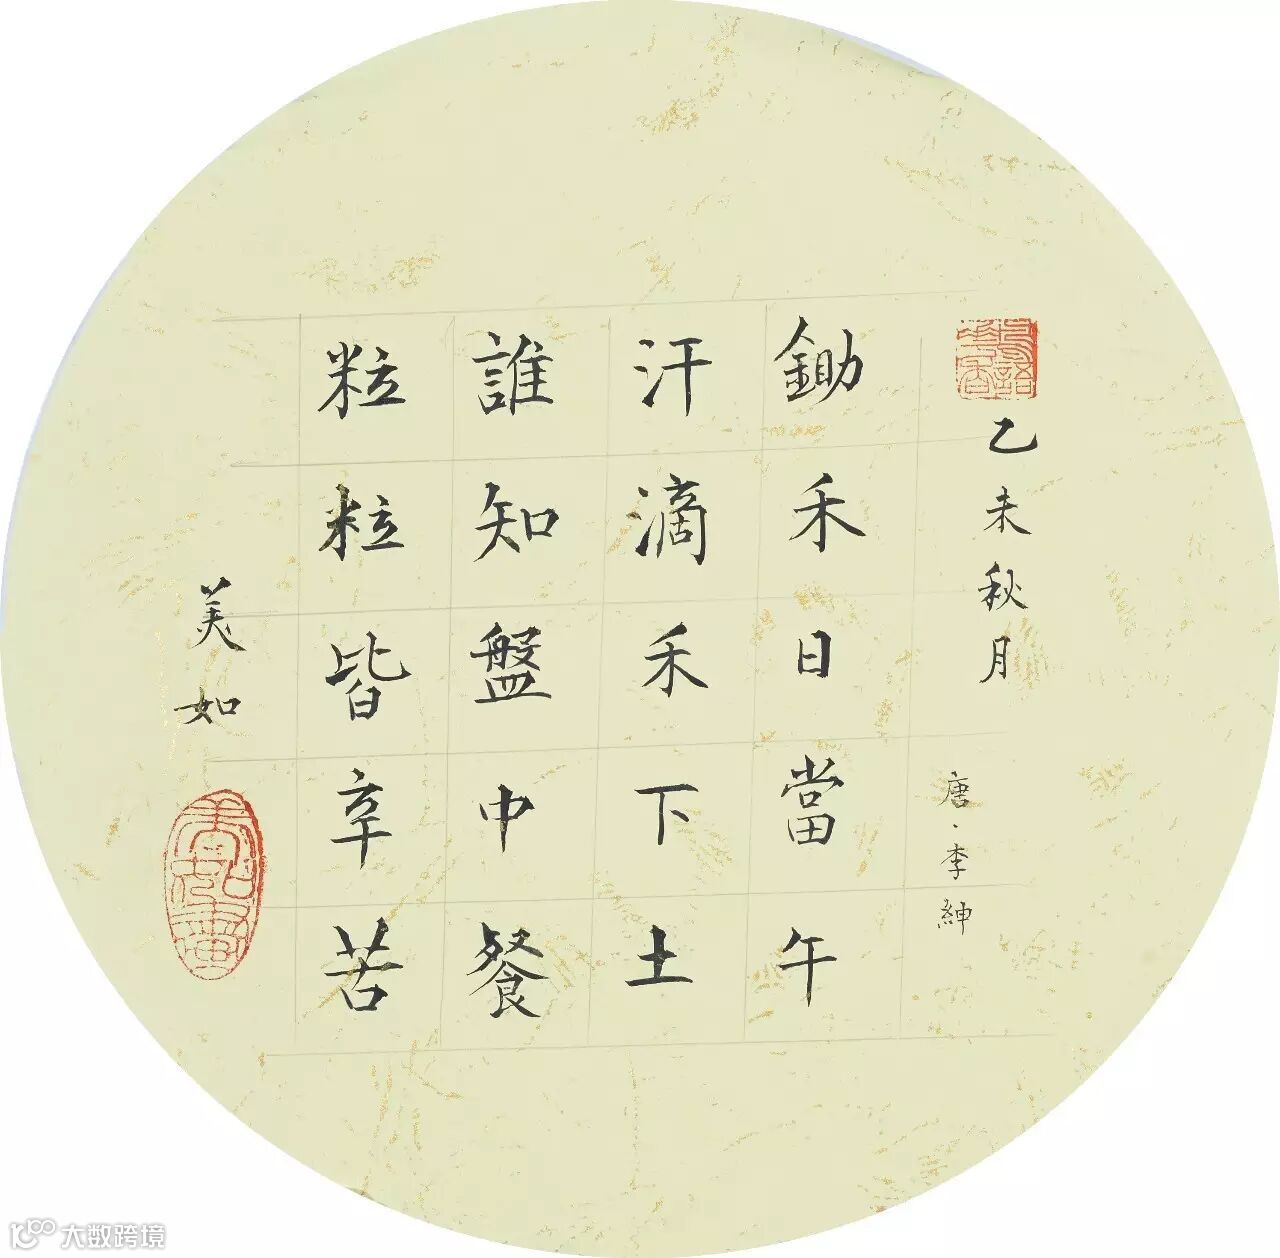 乙未秋月
唐·李紳
鋤禾日當午
汗滴禾下土
誰知盤中餐
粒粒皆辛苦
美如
大数跨境